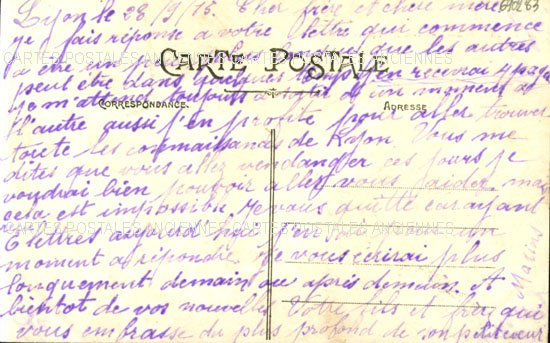 Lyon le 28/9/15. Cher frère et chère mère
je fais réponse à votre lettre qui commence
CARTE POSTALE
a être un que les autres
peut être dans quelques temps j'en recevrai 4 pages
je m'attend toujours à d'un moment à
CORRESPONDANCE. ADRESSE
l'autre aussi j'en profite pour aller trouver
toute les connaissances de Lyon. Vous me
dites que vous allez vendanger ces jours je
voudrai bien pouvoir aller vous aider mais
cela est impossible je vous quitte car ayant
6 lettres aujourd'hui un
moment à répondre je vous écrirai plus
longuement demain ou après demain. A
bientôt de vos nouvelles Votre fils et frère qui
vous embrasse du plus profond de son petit cœur
Marius
CARTES POSTALES ANCIENNES